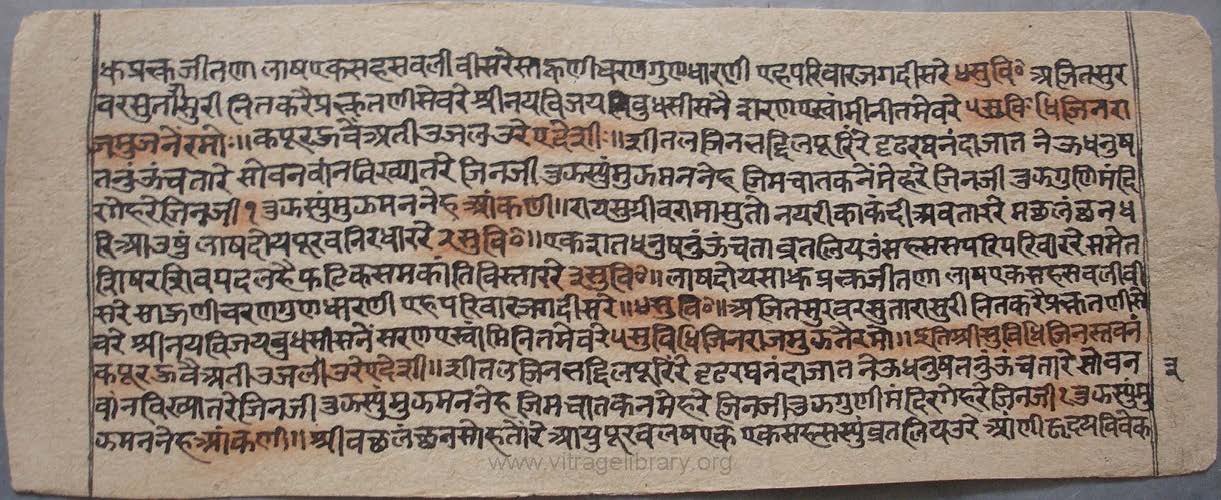 धुप्रभुजीतणा लाषएकसहसवलीवीसरेसाहुणीचरणगुणधारणी एहपरिवारजगदीसरे ४सुवि॰ अजितसुर
वरसुतारासुरी नितकरैप्रभुतणीसेवरे श्रीनयविजयविबुधसीसनै सरणएस्वामीनीतमेवरे ५सुवि॰धिजिनरा
जमुजनेरमो॰॥ कपूरहुवैअतीउजलउरेएदेशी॰॥शीतलजिनभद्दिलपूरिरे दृढरथनंदाजात नेऊधनुष
तनुंऊंचतारे सोवनवांनविख्यातरे जिनजी तुझस्युंमुझमनने
हजिमचातकनेमेहरे जिनजी तुझगुणिमंदि
रगेहरेजिनजी१तुझस्युंमुझमनने
हआंकणी॥रायसुग्रीवरामासुतो नयरीकाकंदीअवताररे मछलंछनध
रिआउषुं लाषदोयपूरवनिरधाररे २सुवि॰॥एकशतधनुषनुंऊंचता व्रतलियउंसहससपरिपरिवाररे समेत
शिषरशिवपदलहै फटिकसमकांतिविस्ताररे ३सुवि॰॥लाषदोयसाधुप्रभुजीतणा लाषएकसहसवलीवी
सरे साहुणीचरणगुणधारणी एहपरिवारजगदीसरे॥४सुवि॰॥अजितसुरवरसुतारासुरी नितकरैप्रभुतणीसे
वरे श्रीनयविजयबुधसीसनें सरणएस्वामिनितमेवरे५सुविधिजिनराजमुझनैरमौ॥इतिश्रीसुविधिजिनस्तवनं
कपूरहुवैअतीउजलोउरेएदेशी॥शीतलजिनभद्दिलपूरिरे दृढरथनंदाजात नेऊधनुषतनुंऊंचतारे सोवन
वांनविख्यातरेजिनजी तुझस्युंमुझमननेह जिमचातकनमेहरे जिनजीतुझगुणीमंदिरगेहरेजिनजी१तुझस्युंमु
झमननेहआंकणी॥श्रीवछलंछनसोहतोरे आयुपूरवलषएक एकसहसस्युंव्रतलियउरे आंणीहृदयविवेक
३
www.vitragelibrary.org